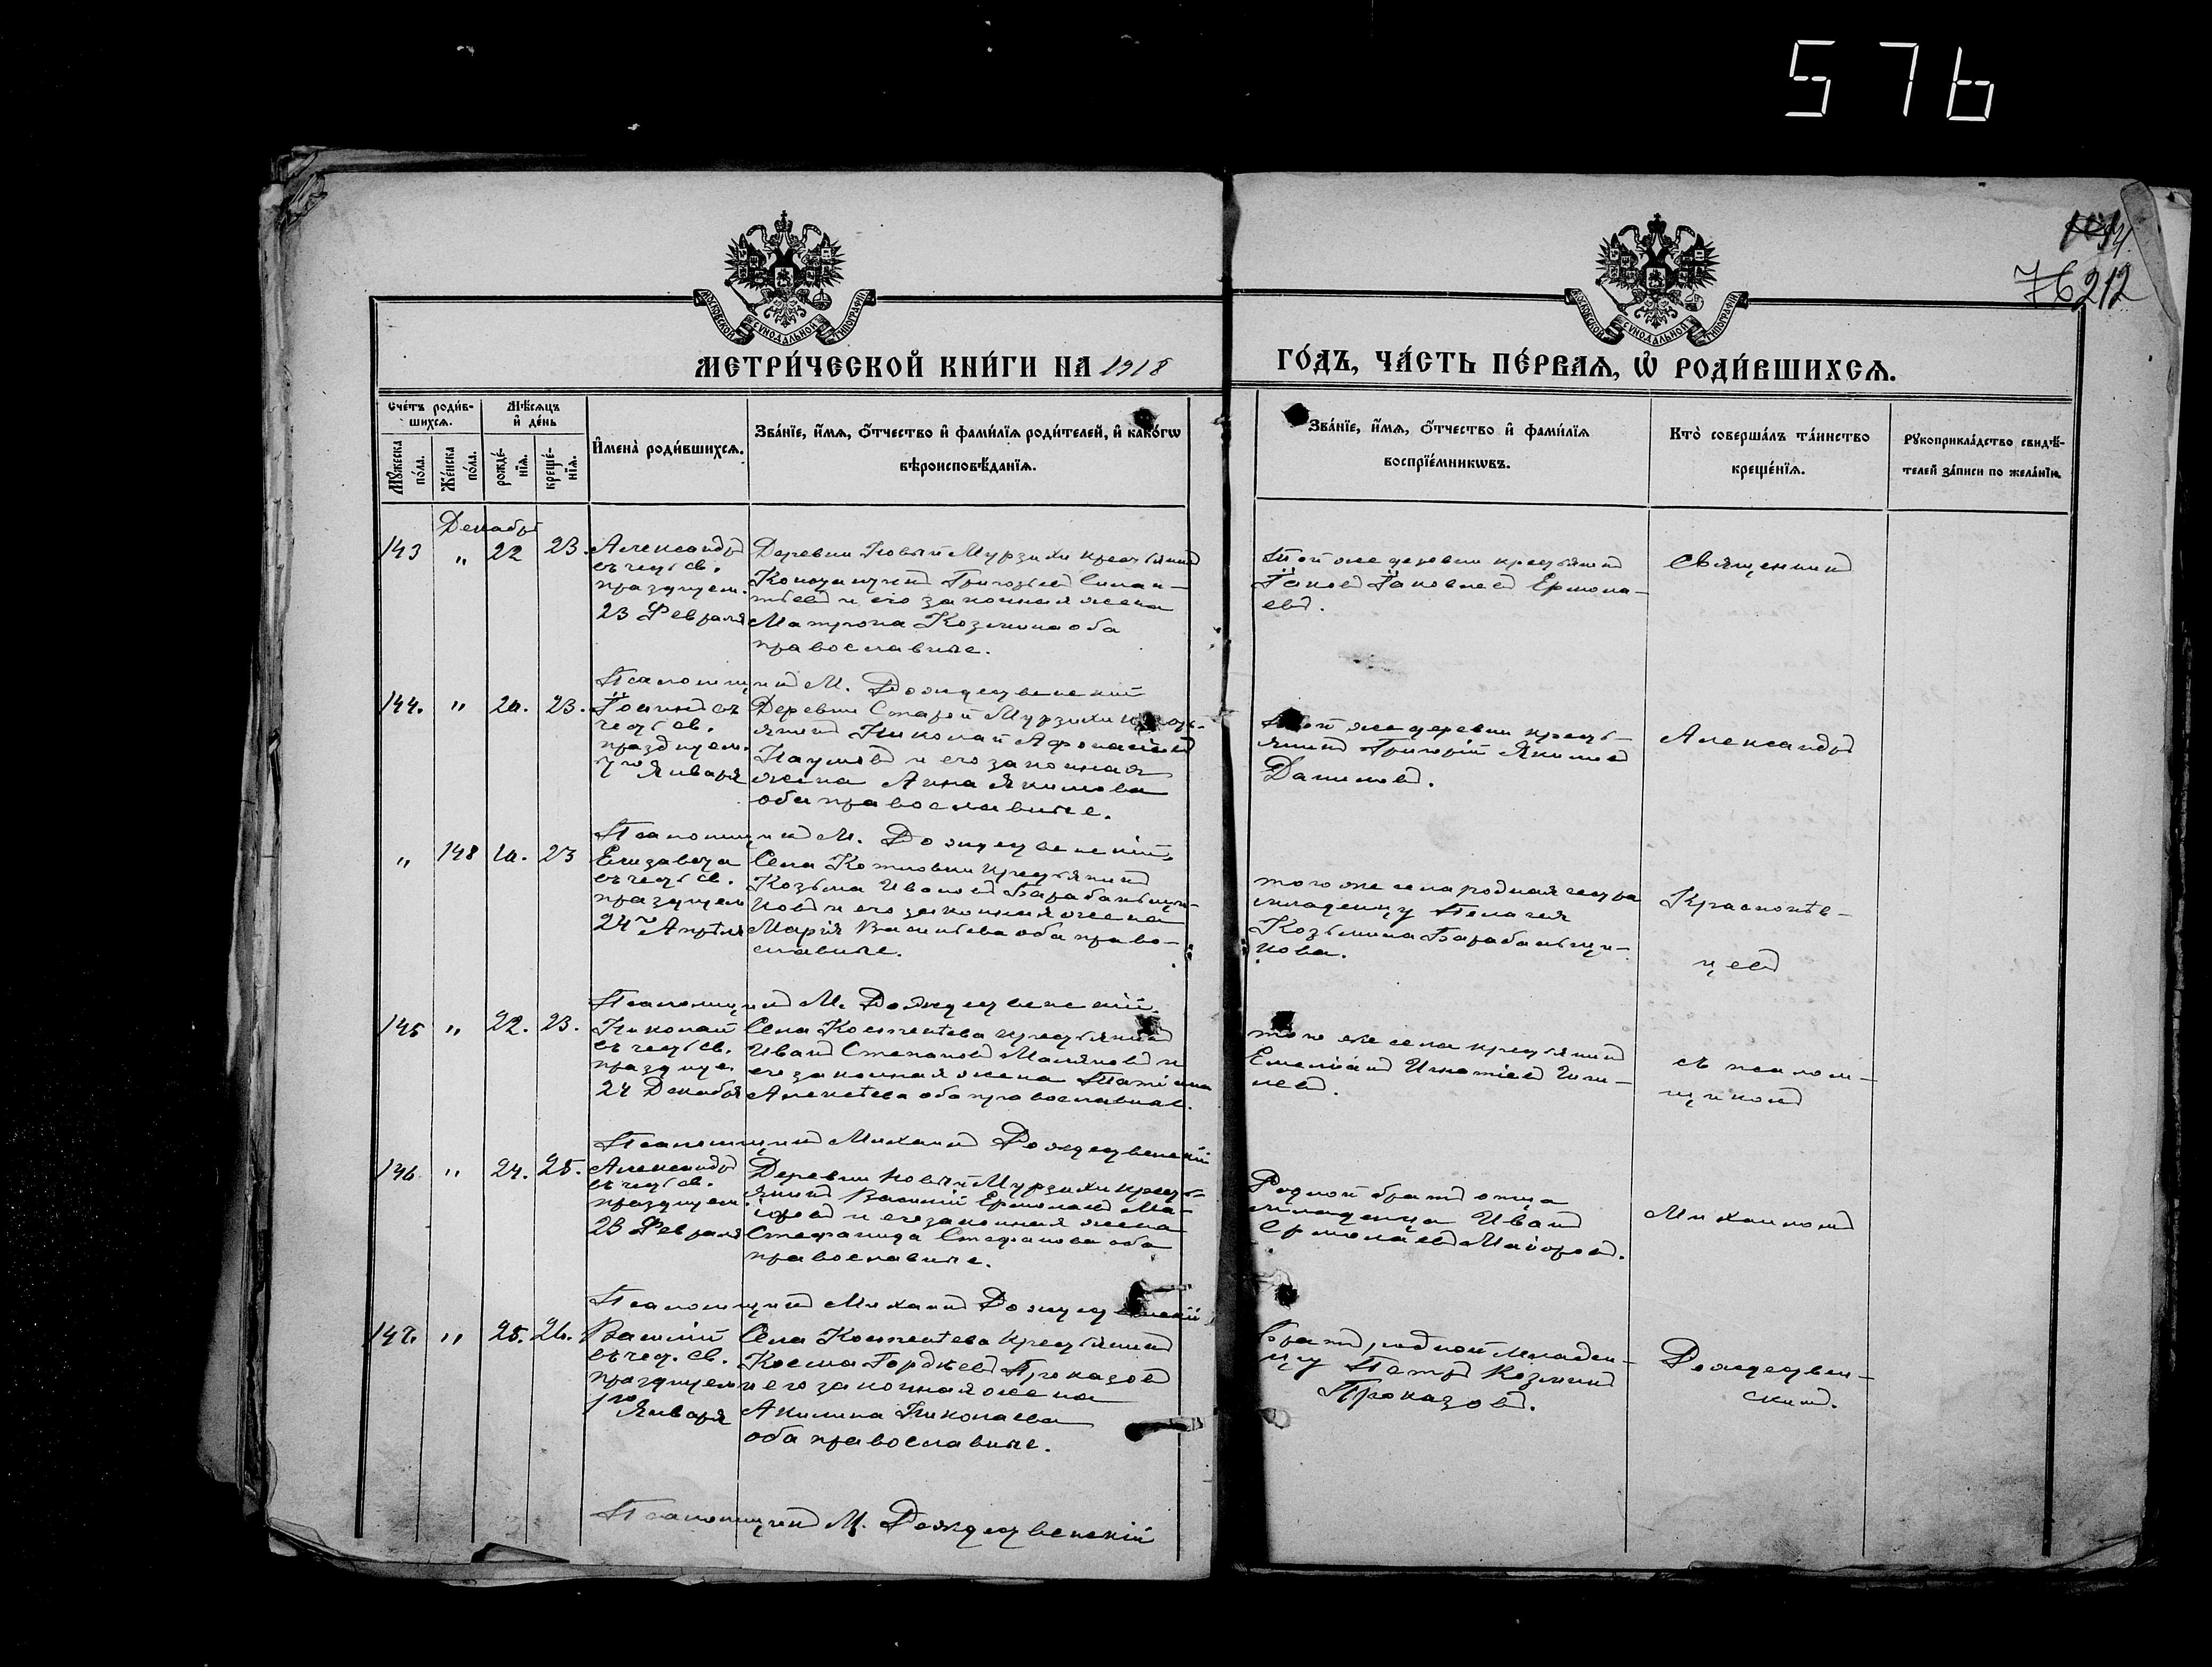 576
1054
76 212
МОСКОВСКОЙ СУНОДАЛЬНОЙ ТИПОГРАФІИ
МОСКОВСКОЙ СУНОДАЛЬНОЙ ТИПОГРАФІИ
МЕТРИ́ЧЕСКОЙ КНИ́ГИ НА 1918 ГО́ДЪ, ЧА́СТЬ ПЕ́РВАЯ, Ѡ҆ РОДИ́ВШИХСЯ.
Сче́тъ роди́в-
шихся.
Мѣ́сяцъ
и҆ де́нь
Мꙋ́жеска
по́ла.
Же́нска
по́ла.
рожде́-
нїя.
креще́-
нїя.
И҆мена̀ роди́вшихся.
Зва́нїе, и҆́мя, о҆́тчество и҆ фами́лїя роди́телей, и҆ како́гѡ
вѣроисповѣ́данїя.
Зва́нїе, и҆́мя, о҆́тчество и҆ фами́лїя
воспрїе́мникѡвъ.
Кто̀ соверша́лъ та́инство
креще́нїя.
Рꙋкоприкла́дство свидѣ́-
телей за́писи по жела́нїю.
Декабрь
143 " 22 23.
Александръ
въ честь св.
празднуем.
23 Февраля
Деревни Новый Мурзихи крестьянинъ
Константинъ Григорьевъ Силан-
тьевъ и его законная жена
Матрона Козмина оба
православные.
Той же деревни крестьянинъ
Іаковъ Іаковлевъ Ермола-
евъ.
Священникъ
Псаломщикъ М. Рождественскій
144. " 20. 23.
Іоаннъ въ
честь св.
празднуем.
7го Января
Деревни Старой Мурзихи кресть-
янинъ Николай Афонасіевъ
Наумовъ и его законная
жена Анна Якимова
оба православные.
Той же деревни кресть-
янинъ Григорій Якимовъ
Даниловъ.
Александръ
Псаломщикъ М. Рождественскій.
" 148 20. 23
Елизавета
въ честь св.
празднуем
24го Апрѣля
Села Котловки крестьянинъ
Козьма Ивановъ Барабаньщи-
ковъ и его законная жена
Марія Васильева оба право-
славные.
того же села родная сестра
младенцу Пелагея
Козьмина Барабаньщи-
кова.
Краснопѣв-
цевъ
Псаломщикъ М. Рождественскій.
145 " 22. 23.
Николай
въ честь св.
праздnуе.
24 Декабря
Села Костенѣева крестьянинъ
Иванъ Степановъ Маляновъ и
его законная жена Татіана
Алексѣева оба православные.
того же села крестьянинъ
Емеліанъ Игнатіевъ
съ псалом-
щикомъ
Псаломщикъ Михаилъ Рождественскій
146 " 24. 25.
Александръ
въ честь св.
празднуем.
23 Февраля
Деревни Новый Мурзихи кресть-
янинъ Василій Ермолаевъ Ма-
іоровъ и его законная жена
Стефанида Стефанова оба
православные.
Родной братъ отца
младенца Иванъ
Ермолаевъ Маіоровъ.
Михаиломъ
Псаломщикъ Михаилъ Рождественскій
147. " 25. 26.
Василій
въ чест. св.
празднуем
1го Января
Села Костенѣева Крестьянинъ
Косма Гордѣевъ Проказовъ
и его законная жена
Акилина Николаева
оба православные.
Братъ родной младен-
цу Петръ Козминъ
Проказовъ.
Рождествен-
скимъ.
Псаломщикъ М. Рождественскій